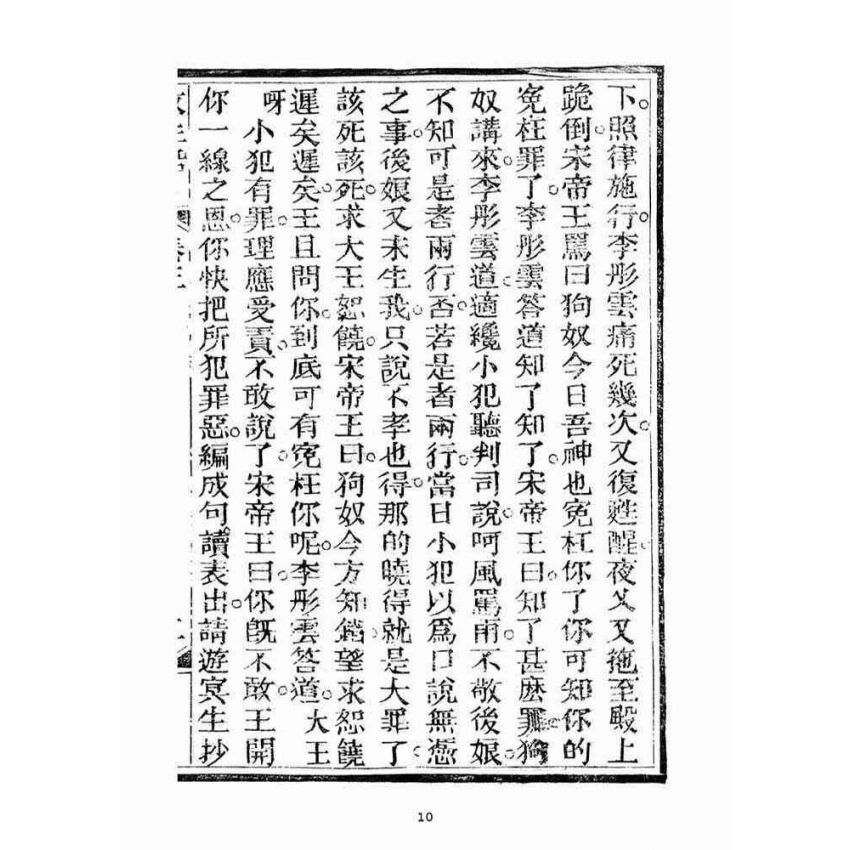 下。照律施行。李彤雲痛死幾次。又復甦醒。夜乂又拖至殿上
跪倒。宋帝王罵曰狗奴今日吾神也寃枉你了你可知你的
寃枉罪了。李彤雲答道知了知了。宋帝王曰。知了甚麽罪。狗
奴講來。李彤雲道。適纔小犯聽判司說。呵風罵雨。不敬後娘。
不知可是者兩行否。若是者兩行。當日小犯以爲口說無憑
之事。後娘又未生我。只說不孝也。得那的曉得就是大罪了。
該死該死。求大王恕饒。宋帝王曰。狗奴今方知錯。望求恕饒
遲矣遲矣。王且問你。到底可有寃枉你呢。李彤雲答道。大王
呀小犯有罪。理應受責。不敢說了。宋帝王曰。你旣不敢。王開
你一線之恩。你快把所犯罪惡。編成句。讀表出。請遊冥生抄
卷三
10